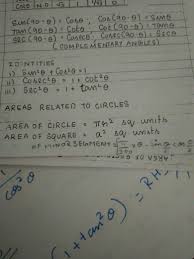 Sin(90-θ) = Cosθ, Cos(90-θ) = Sinθ
Tan(90-θ) = Cotθ, Cot(90-θ) = Tanθ
Sec(90-θ) = Cosecθ, Cosec(90-θ) = Secθ
(COMPLEMENTARY ANGLES)
IDENTITIES
i) Sin²θ + Cos²θ = 1
ii) Cosec²θ = 1 + Cot²θ
iii) Sec²θ = 1 + tan²θ
AREAS RELATED TO CIRCLES
AREA OF CIRCLE = πr² sq units
AREA OF SQUARE = a² sq units
OF MINOR SEGMENT =
cos²θ
(1 + tan²θ)